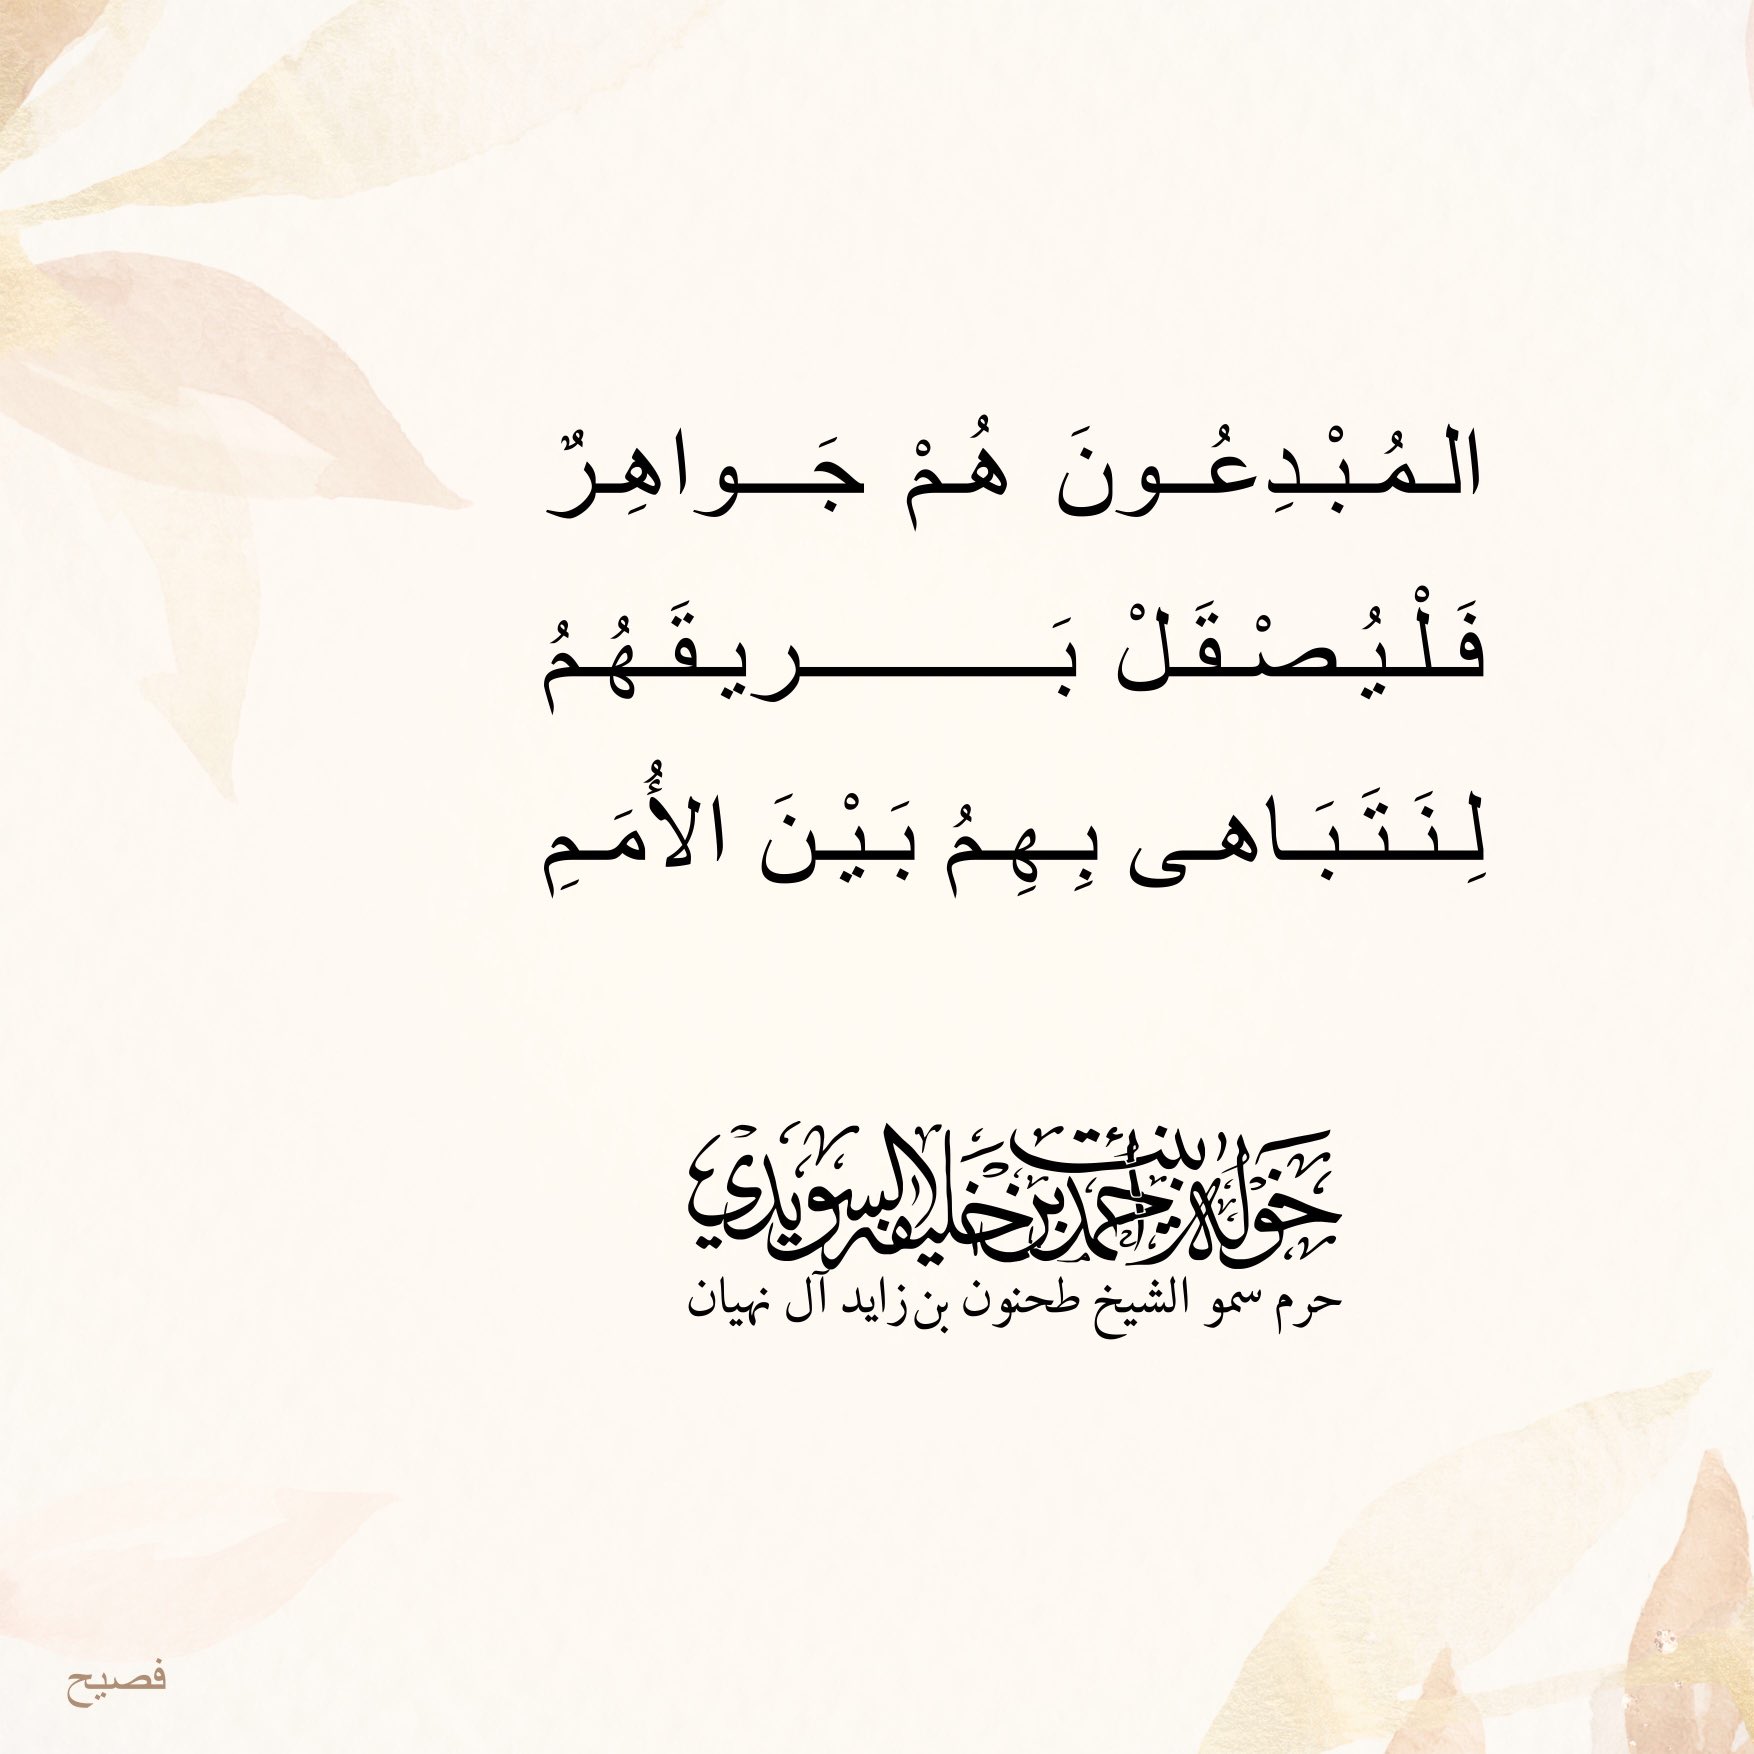 المُبْدِعُونَ هُمْ جَواهِرٌ
فَلْيُصْقَلْ بَريقَهُمُ
لِنَتَبَاهى بِهِمُ بَيْنَ الأُمَمِ
خولة بنت أحمد بن خليفة السويدي
حرم سمو الشيخ طحنون بن زايد آل نهيان
فصيح